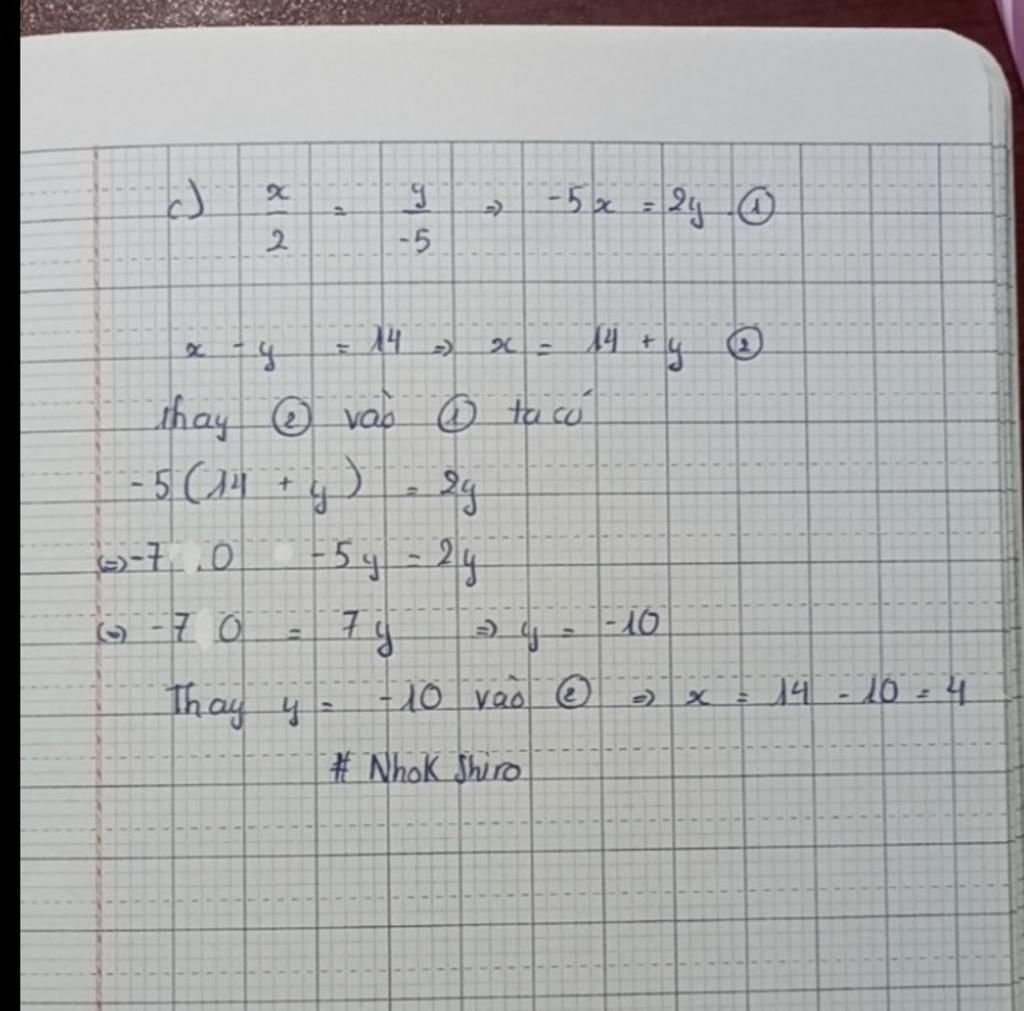 c) x/2 = y/-5 => -5x = 2y ①
x - y = 14 => x = 14 + y ②
thay ② vào ① ta có
-5(14 + y) = 2y
<=> -70 -5y = 2y
<=> -70 = 7y => y = -10
Thay y = -10 vào ② => x = 14 - 10 = 4
# Nhok Shiro